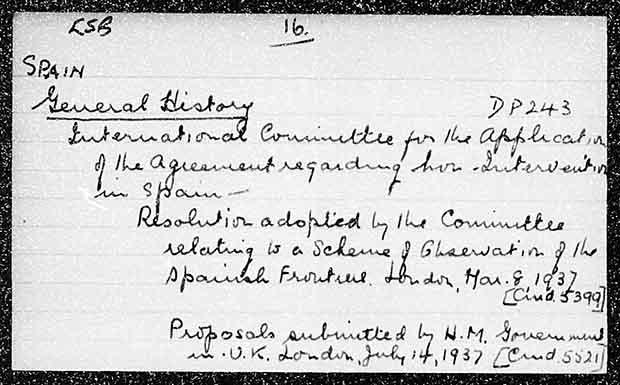 LSB 16.
SPAIN
General History DP243
International Committee for the Application
of the Agreement regarding Non-Intervention
in Spain—
Resolution adopted by the Committee
relating to a Scheme of Observation of the
Spanish Frontiers. London, Mar. 8, 1937
[Cmd. 5399]
Proposals submitted by H.M. Government
in U.K. London, July 14, 1937 [Cmd. 5521]